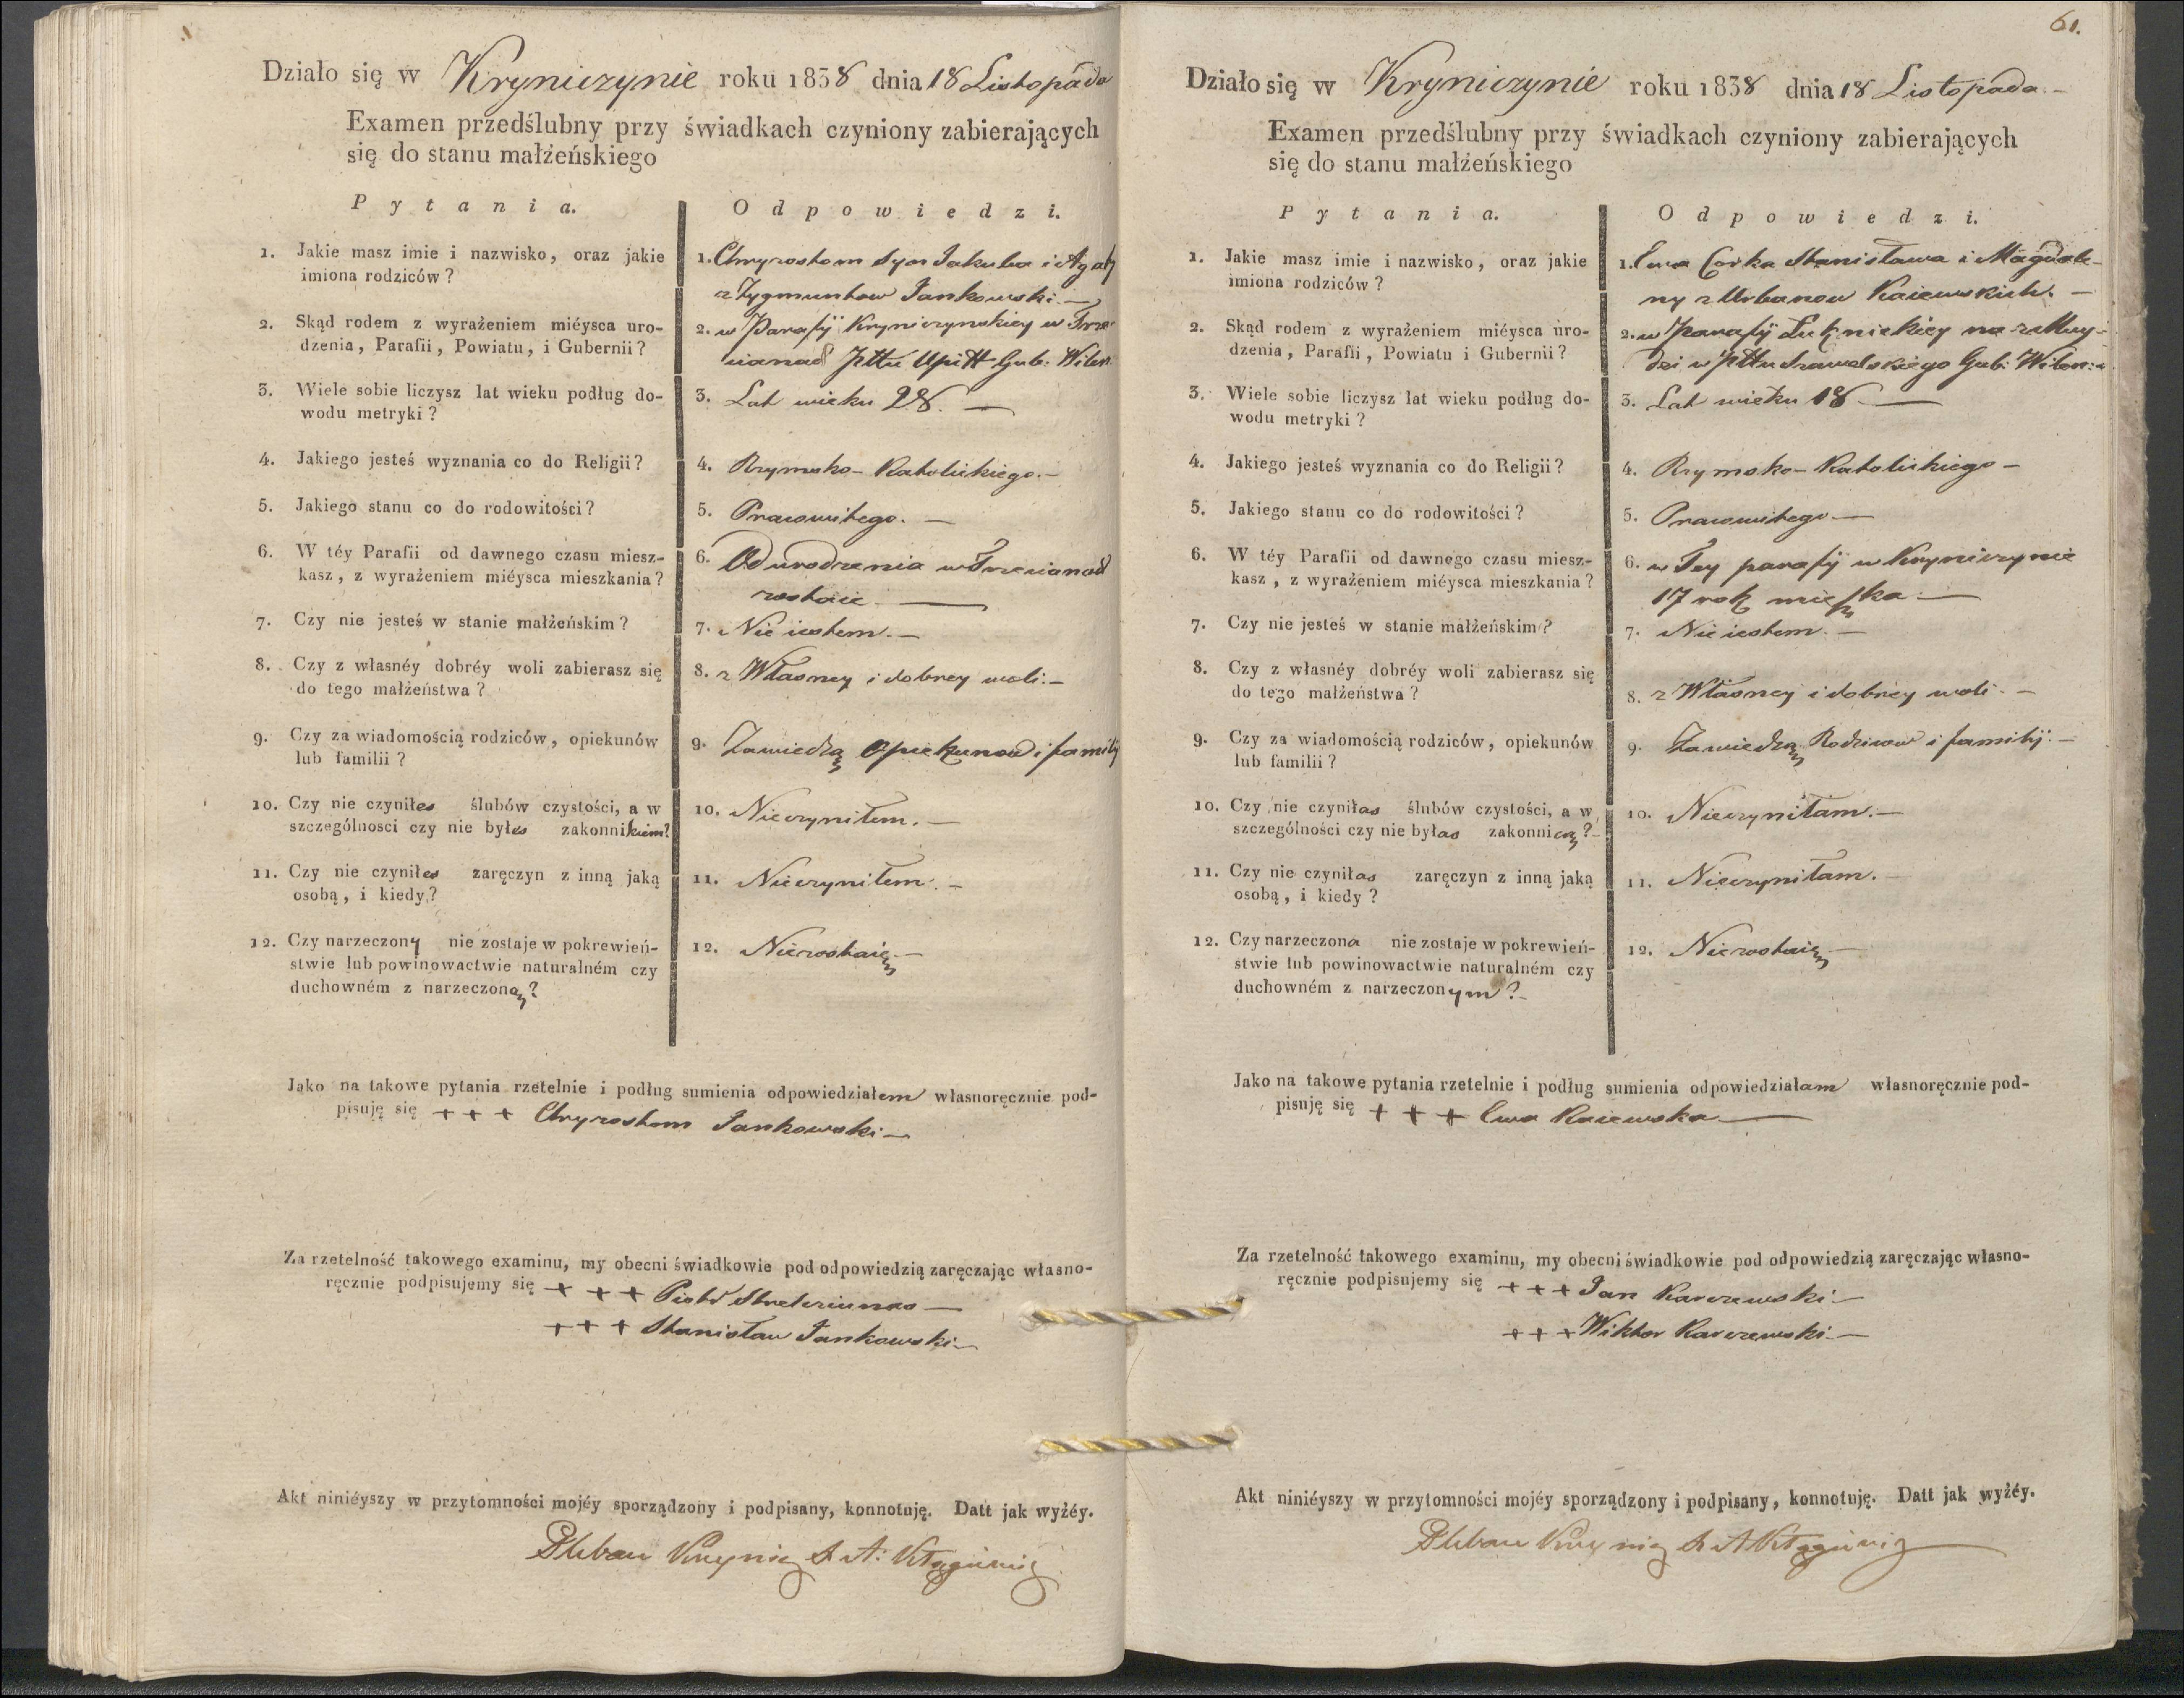 Działo się w Kryniczynie roku 1838 dnia 18 Listopada
Examen przedślubny przy świadkach czyniony zabierających
się do stanu małżeńskiego
Pytania.
Odpowiedzi.
1. Jakie masz imie i nazwisko, oraz jakie
imiona rodziców?
1. Chryzostom Syn Jakuba i Agaty
z Zygmuntow Jankowski. —
2. Skąd rodem z wyrażeniem miéysca uro-
dzenia, Parafii, Powiatu, i Gubernii?
2. w Parafij Kryniczynskiey w
Pttu Upitt Gub: Wilen
3. Wiele sobie liczysz lat wieku podług do-
wodu metryki?
3. Lat wieku 28. —
4. Jakiego jesteś wyznania co do Religii?
4. Rzymsko-Katolickiego. —
5. Jakiego stanu co do rodowitości?
5. Pracowitego. —
6. W téy Parafii od dawnego czasu miesz-
kasz, z wyrażeniem miéysca mieszkania?
6. Od urodzenia w
zostaie —
7. Czy nie jesteś w stanie małżeńskim?
7. Nie iestem. —
8. Czy z własnéy dobréy woli zabierasz się
do tego małżeństwa?
8. z Własney i dobrey woli. —
9. Czy za wiadomością rodziców, opiekunów
lub familii?
9. Zawiedzą Opiekunow i familij
10. Czy nie czyniłes ślubów czystości, a w
szczególnosci czy nie byłes zakonnikiem?
10. Nieczyniłem. —
11. Czy nie czyniłes zaręczyn z inną jaką
osobą, i kiedy?
11. Nieczyniłem. —
12. Czy narzeczony nie zostaje w pokrewień-
stwie lub powinowactwie naturalném czy
duchowném z narzeczoną?
12. Niezostaię. —
Jako na takowe pytania rzetelnie i podług sumienia odpowiedziałem własnoręcznie pod-
pisuję się + + + Chryzostom Jankowski —
Za rzetelność takowego examinu, my obecni świadkowie pod odpowiedzią zaręczając własno-
ręcznie podpisujemy się + + + Piotr —
+ + + Stanisław Jankowski —
Akt niniéyszy w przytomności mojéy sporządzony i podpisany, konnotuję. Datt jak wyżéy.
Pleban
61.
Działo się w Kryniczynie roku 1838 dnia 18 Listopada. —
Examen przedślubny przy świadkach czyniony zabierających
się do stanu małżeńskiego
Pytania.
Odpowiedzi.
1. Jakie masz imie i nazwisko, oraz jakie
imiona rodziców?
1. Ewa Corka Stanisława i Magdale-
ny z Urbanow Kaiewskich. —
2. Skąd rodem z wyrażeniem miéysca uro-
dzenia, Parafii, Powiatu i Gubernii?
2. w Parafij na
w Pttu Szawelskiego Gub: Wilen:
3. Wiele sobie liczysz lat wieku podług do-
wodu metryki?
3. Lat wieku 18 —
4. Jakiego jesteś wyznania co do Religii?
4. Rzymsko-Katolickiego —
5. Jakiego stanu co do rodowitości?
5. Pracowitego —
6. W téy Parafii od dawnego czasu miesz-
kasz, z wyrażeniem miéysca mieszkania?
6. w Tey parafij w Kryniczynie
17 rok mieszka —
7. Czy nie jesteś w stanie małżeńskim?
7. Nie iestem. —
8. Czy z własnéy dobréy woli zabierasz się
do tego małżeństwa?
8. z Własney i dobrey woli. —
9. Czy za wiadomością rodziców, opiekunów
lub familii?
9. Zawiedzą Rodzicow i familij. —
10. Czy nie czyniłas ślubów czystości, a w
szczególności czy nie byłas zakonnicą?
10. Nieczyniłam. —
11. Czy nie czyniłas zaręczyn z inną jaką
osobą, i kiedy?
11. Nieczyniłam. —
12. Czy narzeczona nie zostaje w pokrewień-
stwie lub powinowactwie naturalném czy
duchowném z narzeczonym?
12. Niezostaię —
Jako na takowe pytania rzetelnie i podług sumienia odpowiedziałam własnoręcznie pod-
pisuję się + + + Ewa Kaiewska —
Za rzetelność takowego examinu, my obecni świadkowie pod odpowiedzią zaręczając własno-
ręcznie podpisujemy się + + + Jan Karczewski —
+ + + Wiktor Karczewski —
Akt niniéyszy w przytomności mojéy sporządzony i podpisany, konnotuję. Datt jak wyżéy.
Pleban